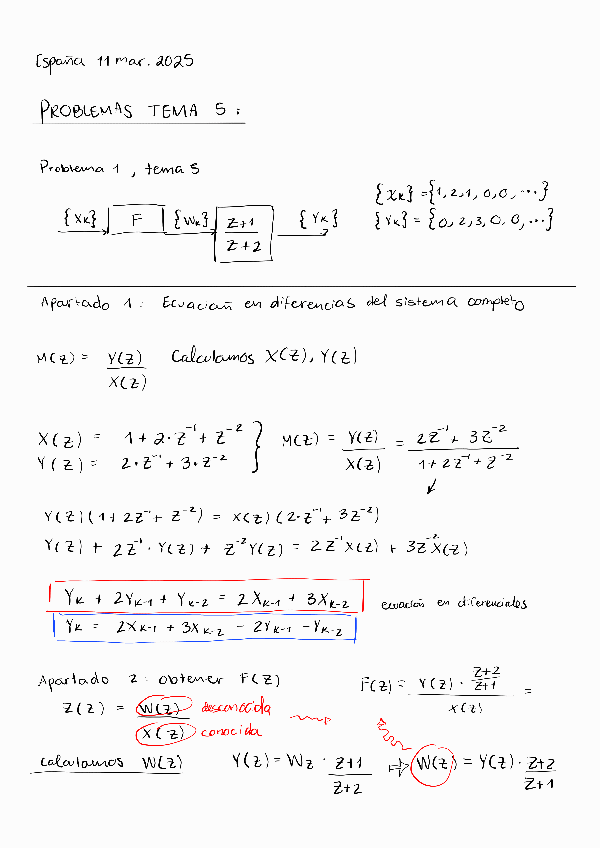 España 11 mar. 2025
PROBLEMAS TEMA 5:
Problema 1, tema 5
{Xk} F {Wk} Z+1 / Z+2 {Yk}
{Xk} = {1, 2, 1, 0, 0, ...}
{Yk} = {0, 2, 3, 0, 0, ...}
Apartado 1: Ecuación en diferencias del sistema completo
M(z) = Y(z) / X(z) Calculamos X(z), Y(z)
X(z) = 1 + 2·z⁻¹ + z⁻²
Y(z) = 2·z⁻¹ + 3·z⁻²
} M(z) = Y(z) / X(z) = 2z⁻¹ + 3z⁻² / 1 + 2z⁻¹ + z⁻²
Y(z)(1 + 2z⁻¹ + z⁻²) = X(z)(2·z⁻¹ + 3z⁻²)
Y(z) + 2z⁻¹·Y(z) + z⁻²Y(z) = 2z⁻¹X(z) + 3z⁻²X(z)
Yk + 2Yk-1 + Yk-2 = 2Xk-1 + 3Xk-2 ecuación en diferenciales
Yk = 2Xk-1 + 3Xk-2 - 2Yk-1 - Yk-2
Apartado 2: obtener F(z)
Z(z) = W(z) desconocida / X(z) conocida
F(z) = Y(z) · z+2 / z+1 / X(z) =
calculamos W(z) Y(z) = Wz · z+1 / z+2 ⇒ W(z) = Y(z) · z+2 / z+1